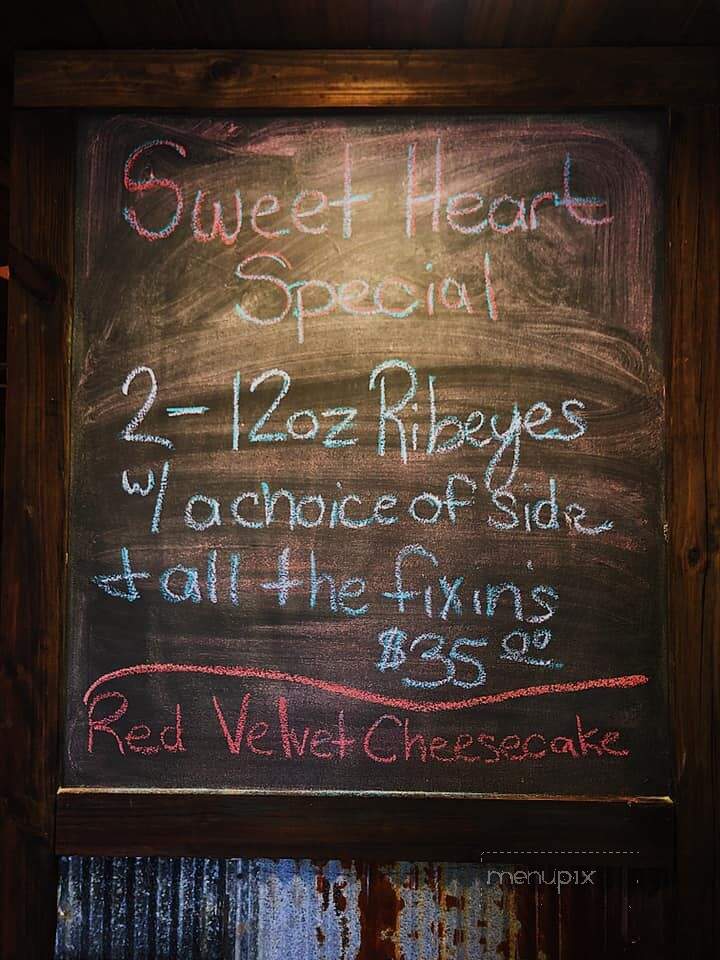 Sweet Heart
Special
2-12oz Ribeyes
w/ a choice of side
+ all the fixin's
$35.00
Red Velvet Cheesecake
menupix